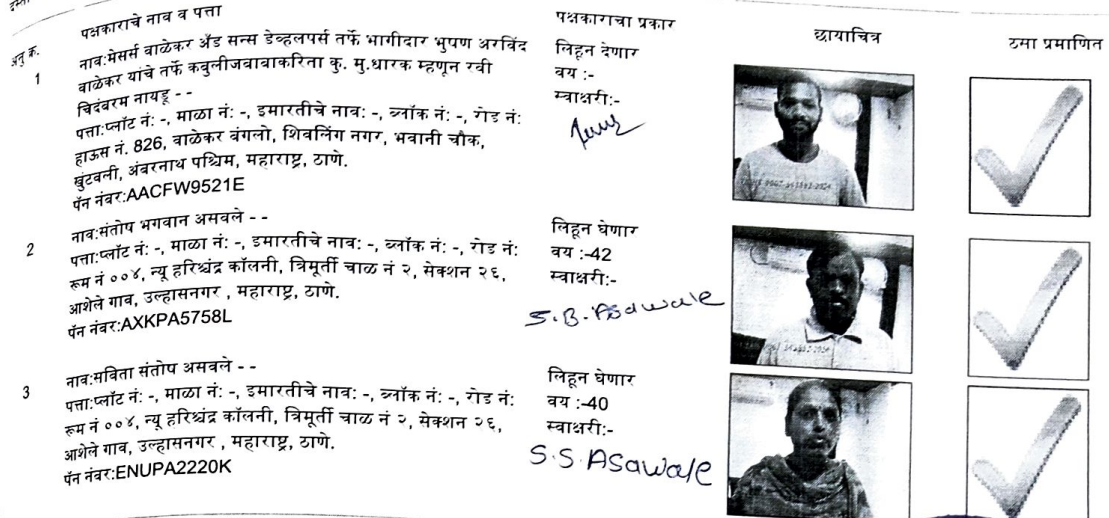 अनु क्र.
पक्षकाराचे नाव व पत्ता
पक्षकाराचा प्रकार
छायाचित्र
ठसा प्रमाणित
1
नाव:मेसर्स वाळेकर अँड सन्स डेव्हलपर्स तर्फे भागीदार भुषण अरविंद
वाळेकर यांचे तर्फे कबुलीजबाबाकरिता कु. मु.धारक म्हणून रवी
चिदंबरम नायडू - -
पत्ता:प्लॉट नं: -, माळा नं: -, इमारतीचे नाव: -, ब्लॉक नं: -, रोड नं:
हाऊस नं. 826, वाळेकर बंगलो, शिवलिंग नगर, भवानी चौक,
खुंटवली, अंबरनाथ पश्चिम, महाराष्ट्र, ठाणे.
पॅन नंबर:AACFW9521E
लिहून देणार
वय :-
स्वाक्षरी:-
2
नाव:संतोष भगवान असवले - -
पत्ता:प्लॉट नं: -, माळा नं: -, इमारतीचे नाव: -, ब्लॉक नं: -, रोड नं:
रूम नं ००४, न्यू हरिश्चंद्र कॉलनी, त्रिमूर्ती चाळ नं २, सेक्शन २६,
आशेले गाव, उल्हासनगर , महाराष्ट्र, ठाणे.
पॅन नंबर:AXKPA5758L
लिहून घेणार
वय :-42
स्वाक्षरी:-
S.B.Asawale
3
नाव:सविता संतोष असवले - -
पत्ता:प्लॉट नं: -, माळा नं: -, इमारतीचे नाव: -, ब्लॉक नं: -, रोड नं:
रूम नं ००४, न्यू हरिश्चंद्र कॉलनी, त्रिमूर्ती चाळ नं २, सेक्शन २६,
आशेले गाव, उल्हासनगर , महाराष्ट्र, ठाणे.
पॅन नंबर:ENUPA2220K
लिहून घेणार
वय :-40
स्वाक्षरी:-
S.S.Asawale